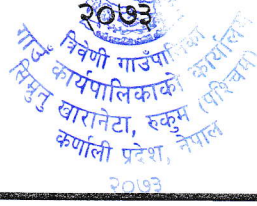 २०७३
त्रिवेणी गाउँपालिका
गाउँ कार्यपालिकाको कार्यालय
सिम्रुतु खारानेटा, रुकुम (पश्चिम)
कर्णाली प्रदेश, नेपाल
२०७३